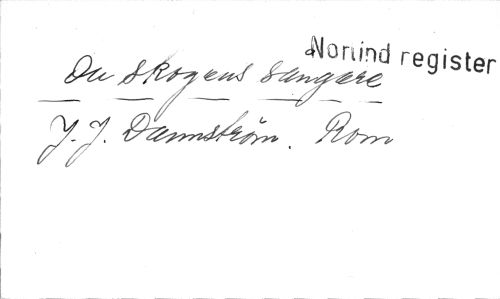 Norlind register
Du skogens sångare
J. J. Dannström. Rom